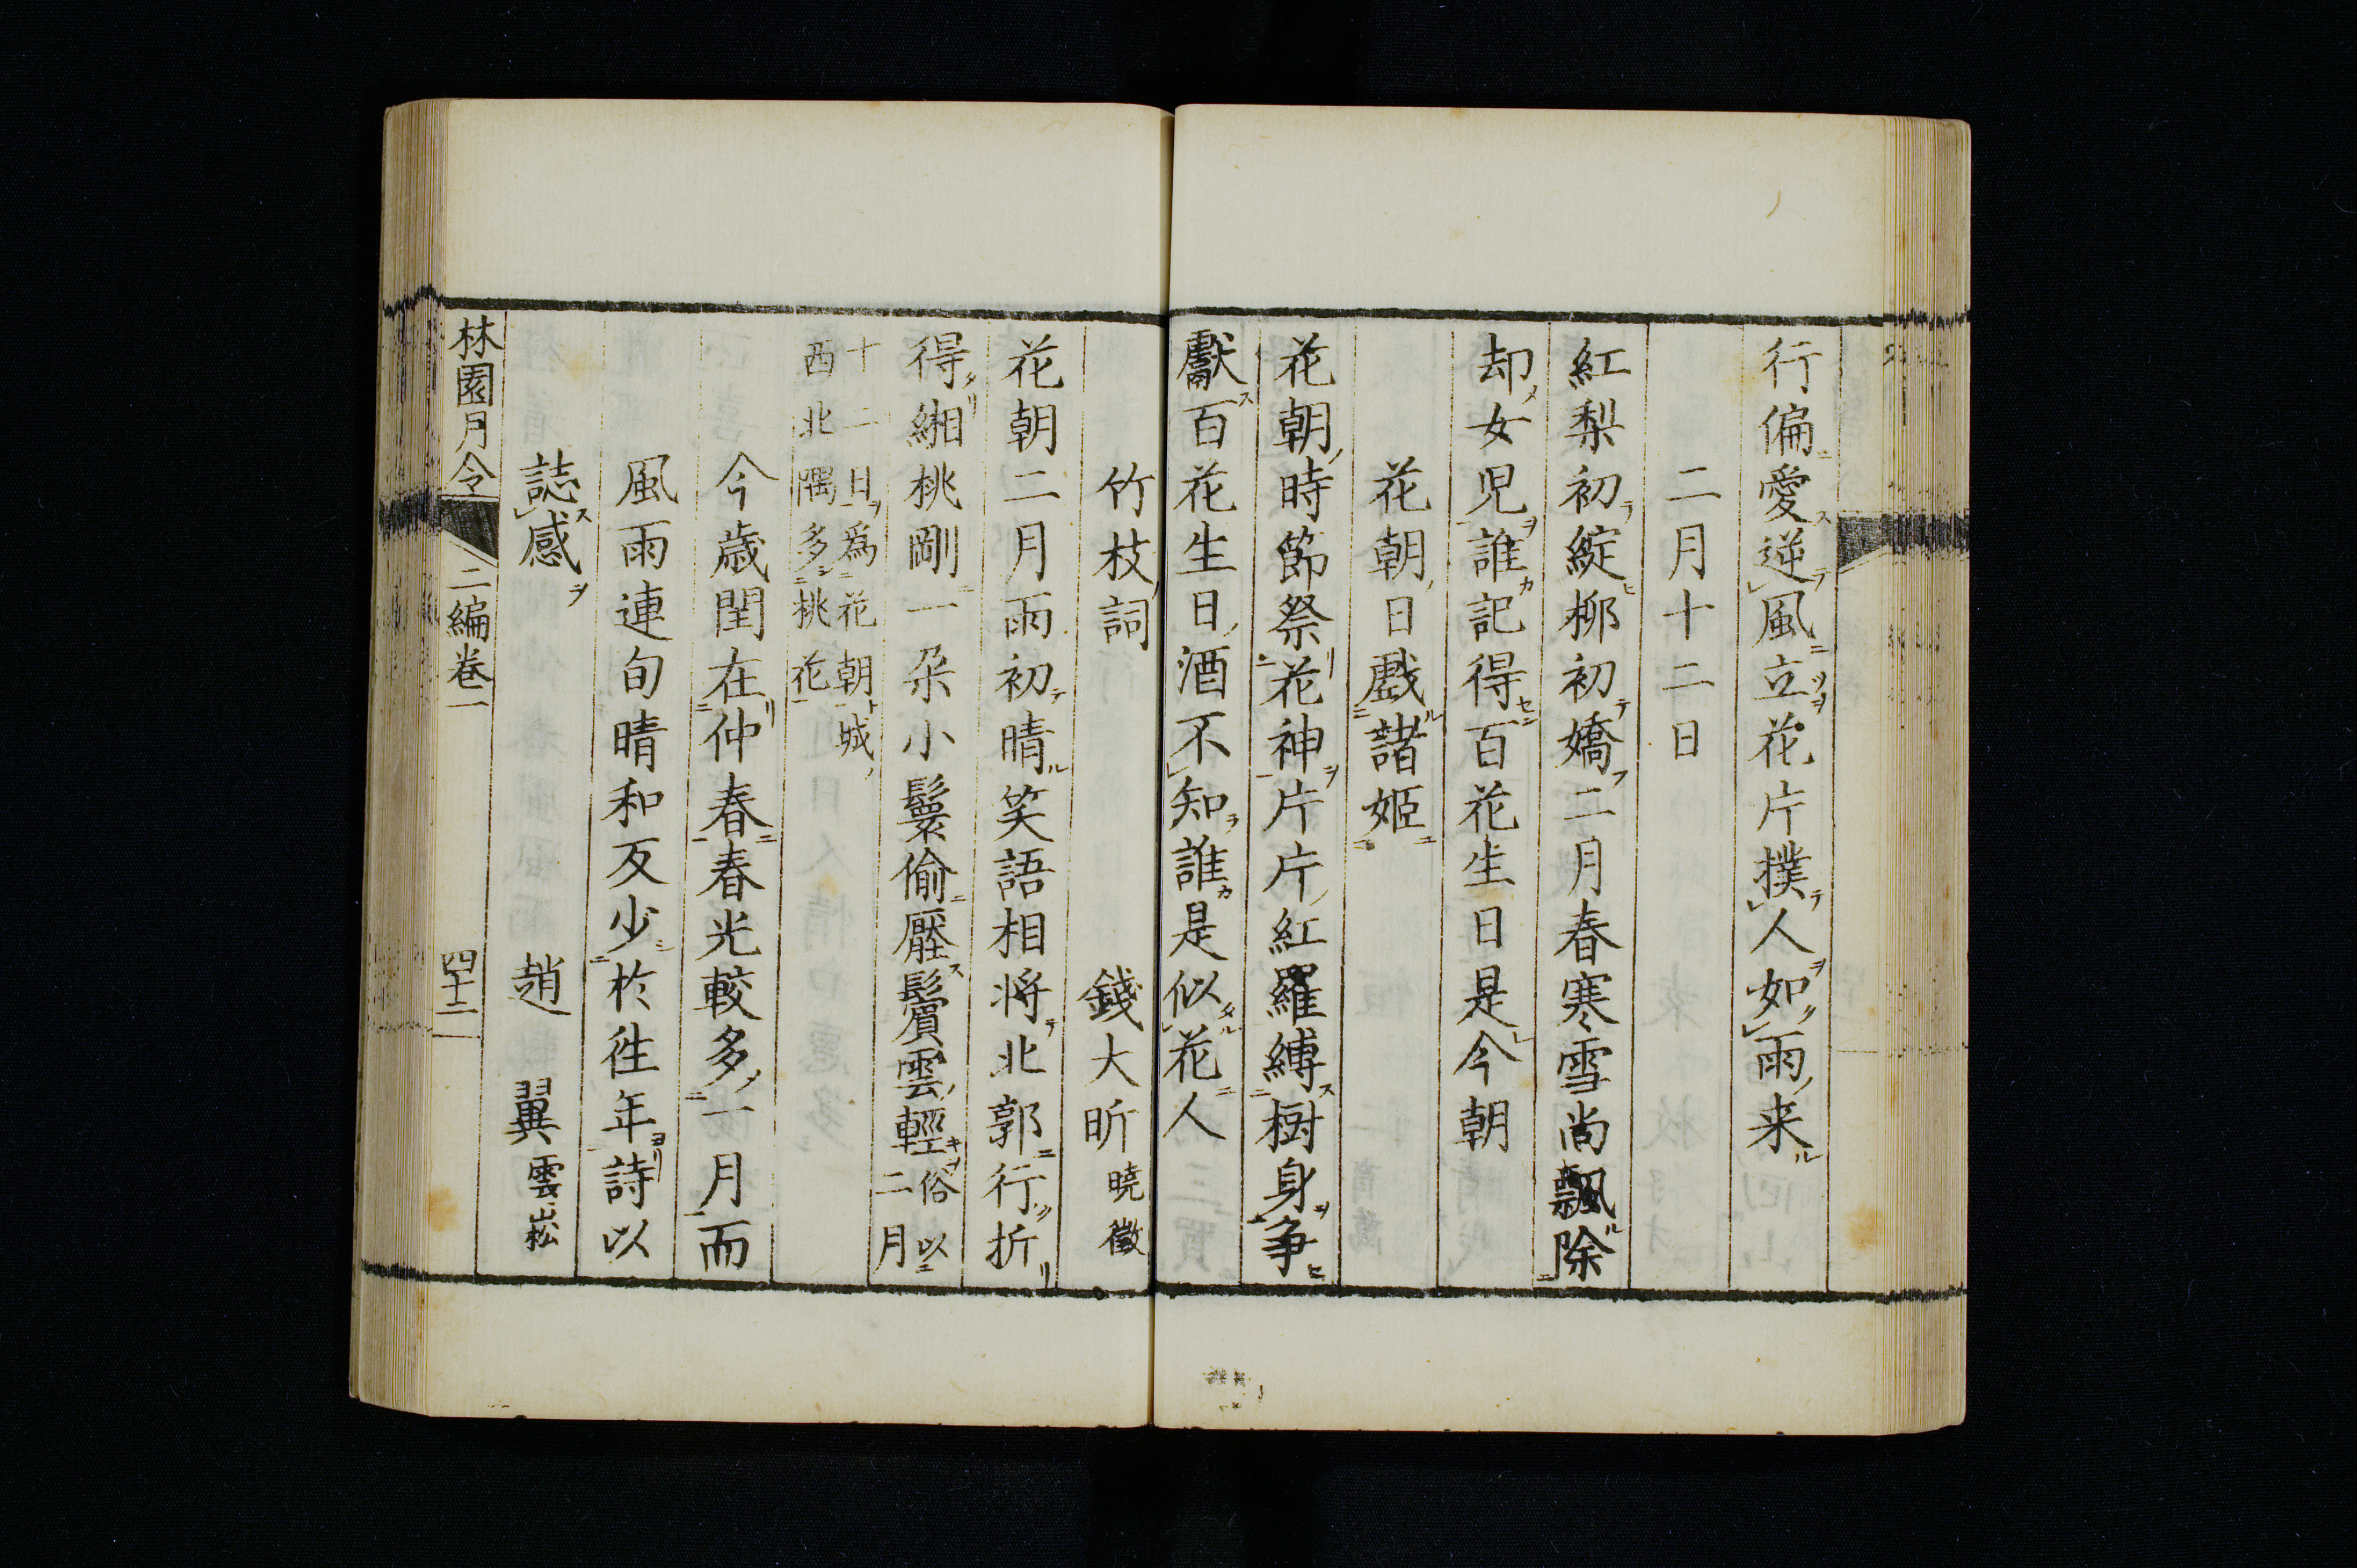 行偏愛逆風立花片撲人如雨来
二月十二日
紅梨初綻桺初嬌二月春寒雪尚飄除
却女児誰記得百花生日是今朝
花朝日戲諸姬
花朝時節祭花神片片紅羅縛樹身争
獻百花生日酒不知誰是似花人
竹枝詞 錢大昕 曉徵
花朝二月雨初晴笑語相将北郭行折
得緗桃剛一朶小鬟偷壓鬢雲輕 俗以二月
十二日爲花朝城
西北隅多桃花
今歳閏在仲春春光較多一月而
風雨連旬晴和反少於徃年詩以
誌感 趙翼 雲崧
林園月令 二編卷一 四十二